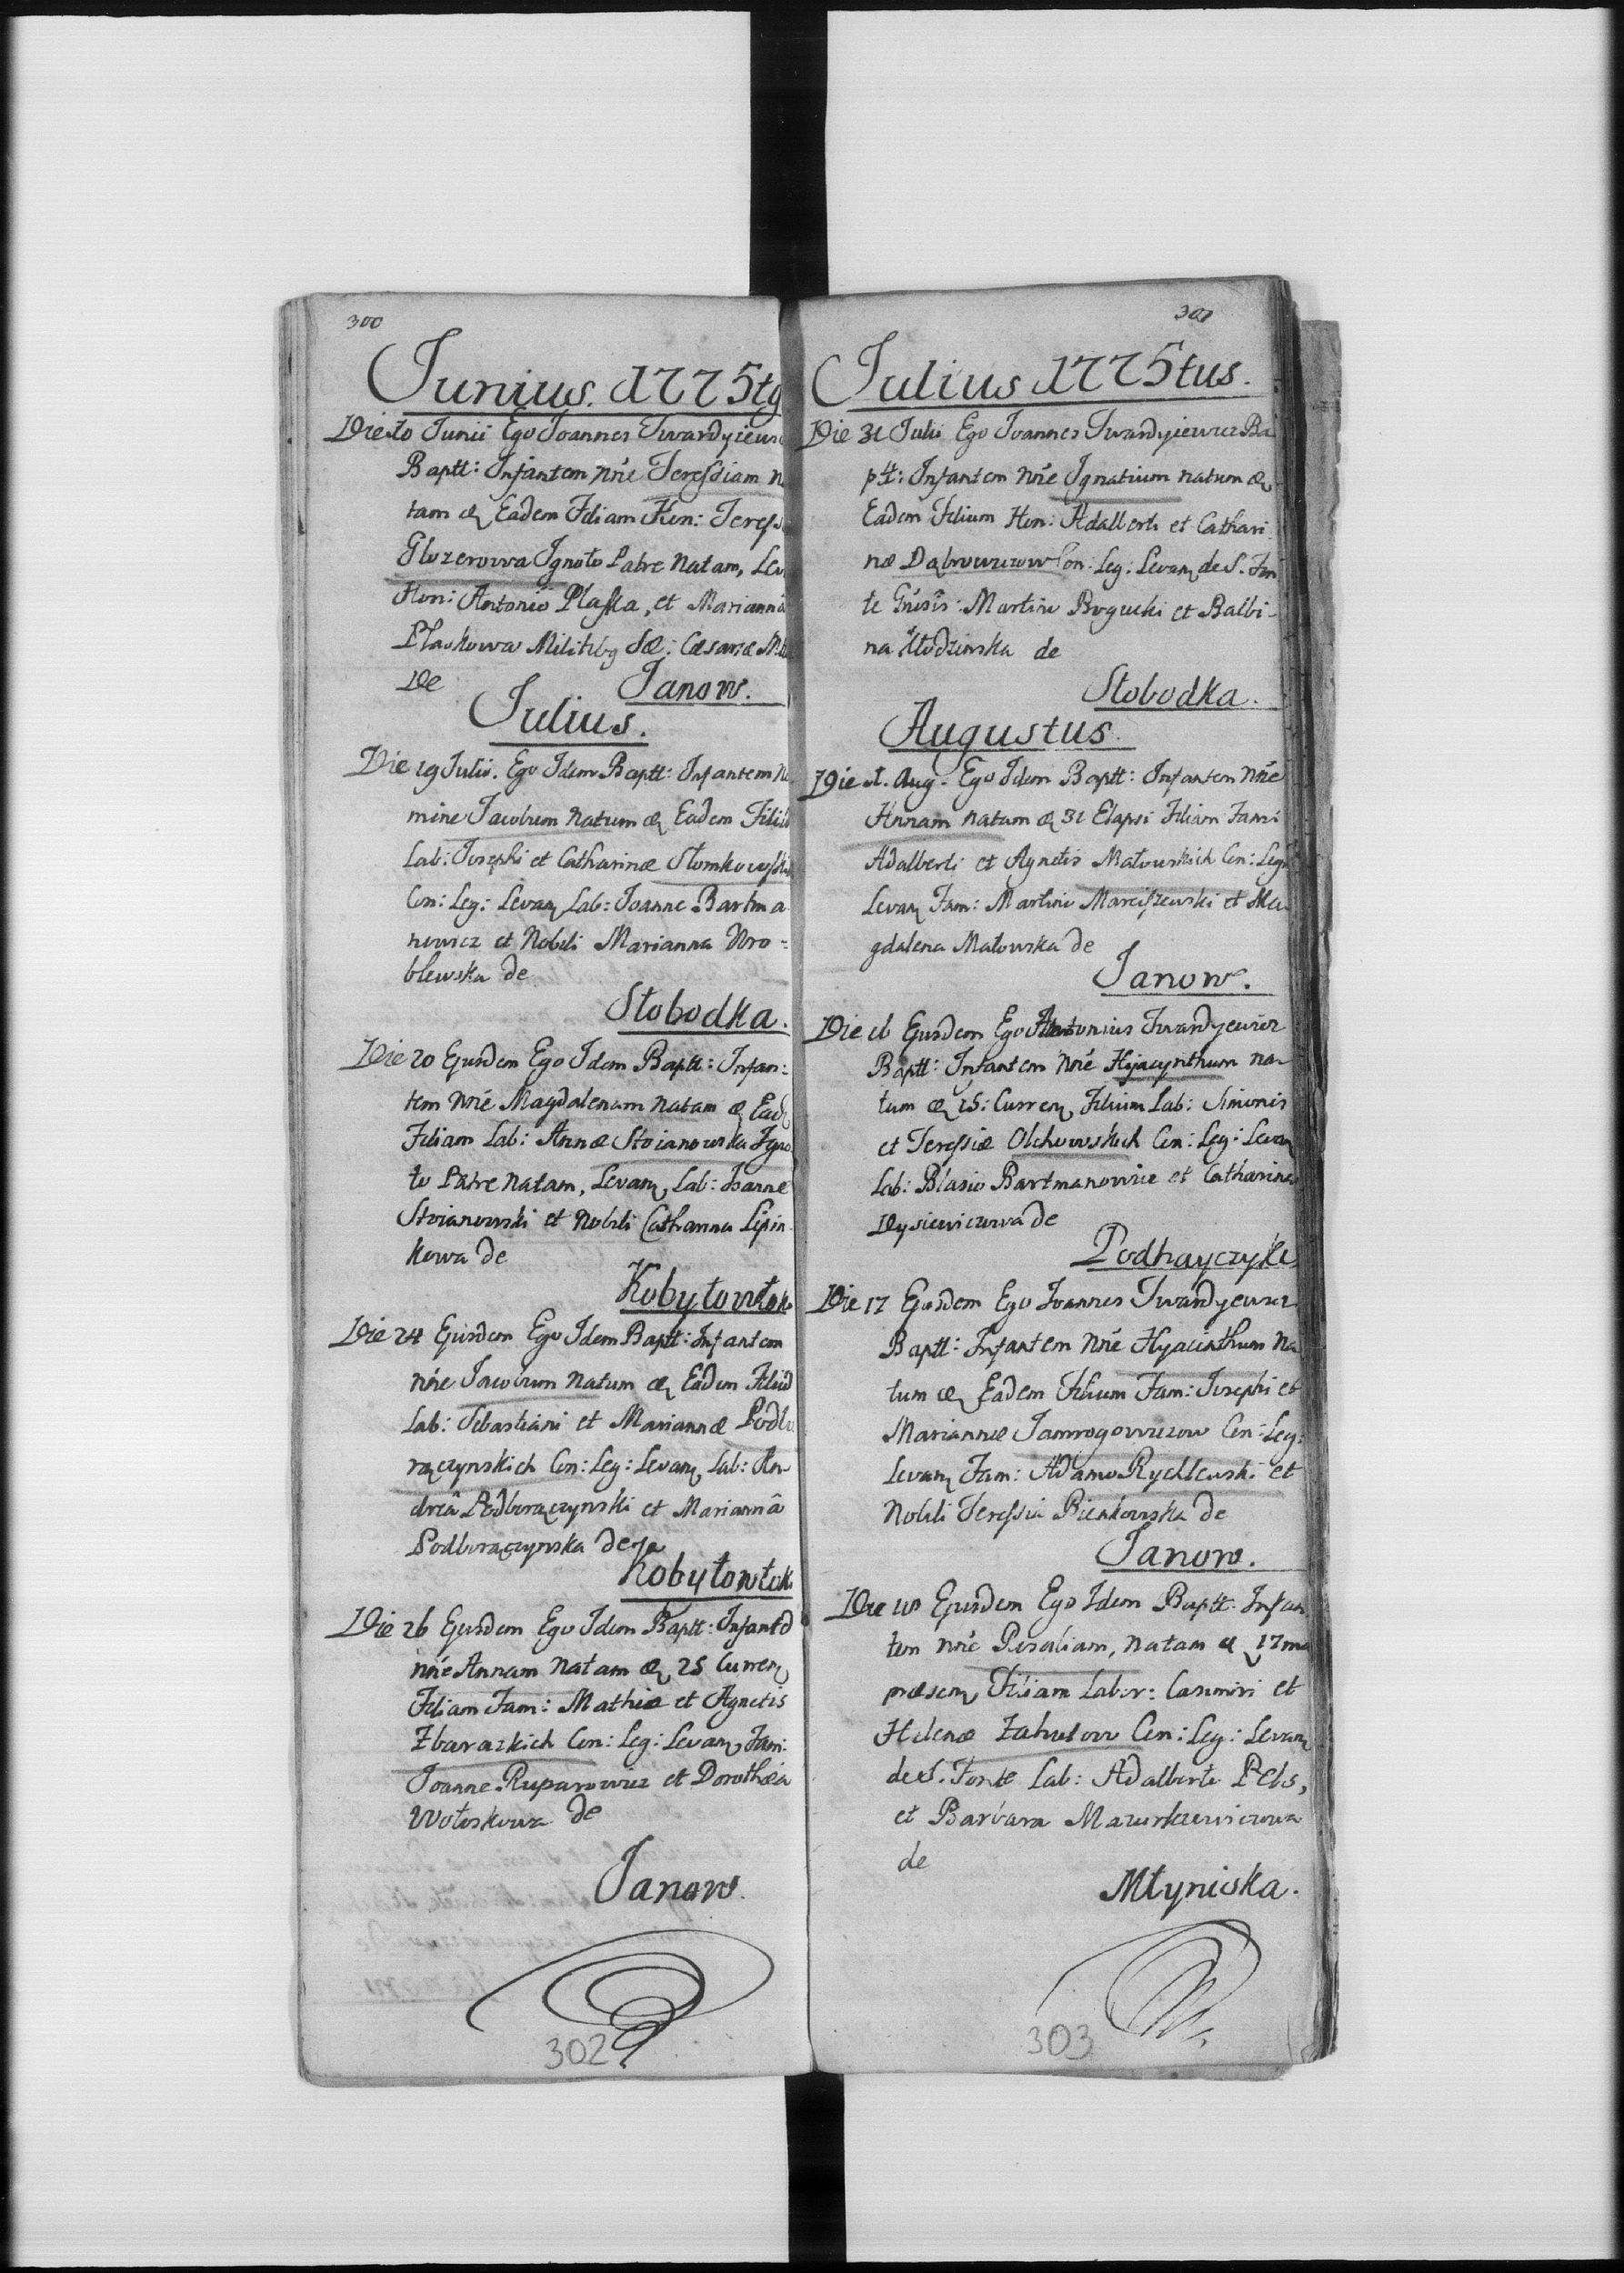 300
Junius. 1775tus
Die 10 Junii Ego Joannes Twardyiewic
Baptt: Infantem nrie Teressiam n
tam eg Eadem Filiam Hon: Teress
Glozerowa Ignoto Patre Natam, Lev
Hon: Antonio Plaska, et Marianna
Plaskowa Militibg Sae: Caesarae
De Janow.
Julius.
Die 19 Julii. Ego Idem Baptt: Infantem No
mine Jacobum Natum eg Eadem Filiu
Lab: Josephi et Catharinae Słomkowski
Con: Leg: Levang Lab: Joanne Bartma
nowicz et Nobili Marianna Wro=
blewska de
Słobodka.
Die 20 Ejusdem Ego Idem Baptt: Infan:
tem nrie Magdalenam natam eg Ead
Filiam Lab: Annae Stoianowska Igno
to Patre Natam, Levang Lab: Joanne
Stoianowski et Nobili Catharina Lipin
kowa de
Kobyłowłok
Die 24 Ejusdem Ego Idem Baptt: Infantem
nrie Jacobum Natum eg Eadem Filiu
Lab: Sebastiani et Mariannae Podbo
rączynskich Con: Leg: Levang Lab: An
dreâ Podborączynski et Mariannâ
Podborączynska de
Kobyłowłok
Die 26 Ejusdem Ego Idem Baptt: Infante
nrie Annam Natam eg 25 Curreng
Filiam Fam: Mathiae et Agnetis
Zbarazkich Con: Leg: Levang Fam:
Joanne Ruparowicz et Dorothea
Wołoskowa de
Janow.
302
301
Julius 1775tus.
Die 31 Julii Ego Joannes Twardyiewicz Ba
ptt: Infantem nrie Ignatium natum eg
Eadem Filium Hon: Adalberti et Cathari
nae Dąbrowiczow Con: Leg: Levang de S. Fon
te Martino Bogucki et Balbi-
na Kłodzinska de
Słobodka.
Augustus.
Die 1. Aug. Ego Idem Baptt: Infantem nrie
Annam natam eg 31 Elapsi Filiam Fam:
Adalberti et Agnetis Matowskich Con: Leg:
Levang Fam: Martino Marciszewski et Ma
gdalena Matowska de
Janow.
Die 16 Ejusdem Ego Antonius Twardyewicz
Baptt: Infantem nrie Hijacynthum na-
tum eg 15: Curreng Filium Lab: Simonis
et Teressiae Olchowskich Con: Leg: Levang
Lab: Blasio Bartmanowicz et Catharina
Dysiewiczowa de
Podhayczyki
Die 17 Ejusdem Ego Joannes Twardyewicz
Baptt: Infantem nrie Hyacinthum Na
tum eg Eadem Filium Fam: Josephi et
Mariannae Jamrogowiczow Con: Leg:
Levang Fam: Adamo Rychlewski et
Nobili Teressia Bienkowska de
Janow.
Die 18 Ejusdem Ego Idem Baptt: Infan
tem nrie Rosaliam, natam eg 17ma
praeseng Filiam Labor: Casimiri et
Helenae Zahutow Con: Leg: Levang
de S. Fonte Lab: Adalberto Pels,
et Barbara Mazurkiewiczowa
de
Młyniska.
303